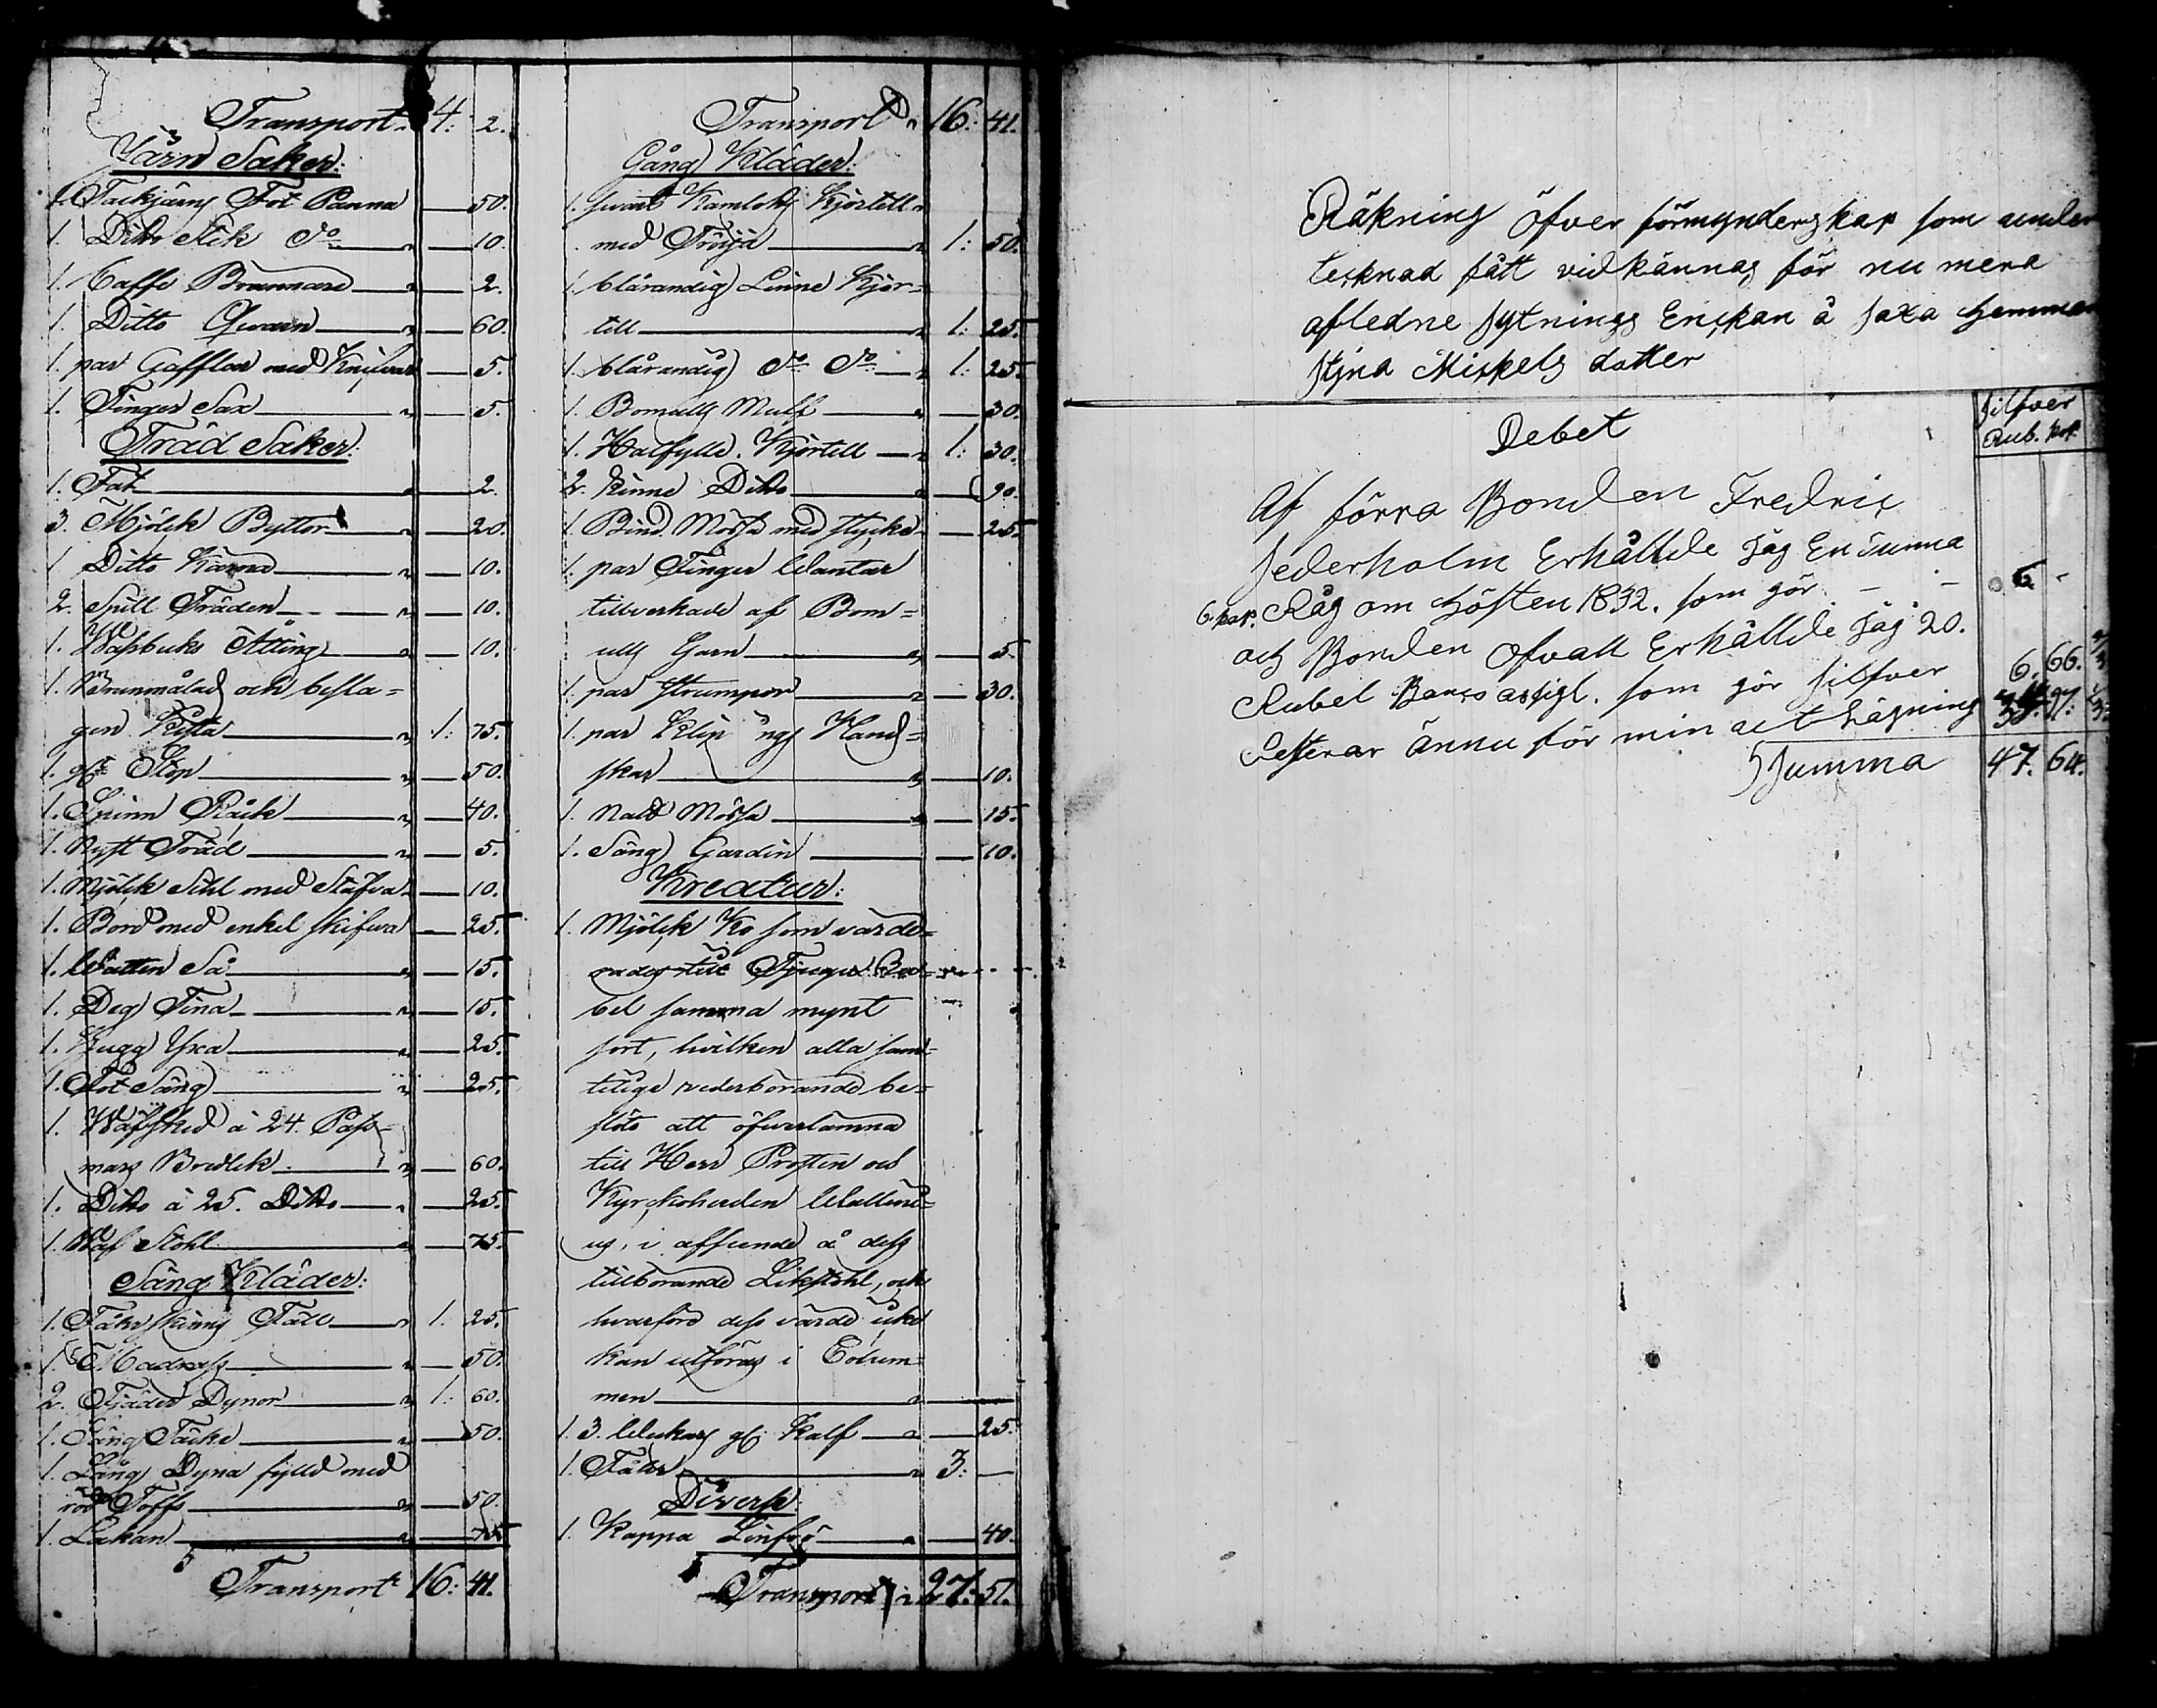 Transport 4: 2.
Järn Saker:
1. Tackjärns Fot Panna 50.
1. Ditto Stek Do 10.
1. Caffe Brännare 2.
1. Ditto Qwarn 60.
1. par Gafflar med Knifvar 5.
1. Finger Sax 5.
Träd Saker:
1. Fat 2.
3. Mjölck Byttor 20.
1 Ditto Kärna 10.
2. Spill Träden 10.
1. Åtting 10.
1. Brunmålad och besla=
gen Kista 1: 75.
1. Stop 50.
1. Spinn Råck 40.
1. Nyst Träd 5.
1. Mjölck Sihl med Stäfva 10.
1. Bord med enkel skifva 25.
1. Watten Så 15.
1. Deg Tina 15.
1. Hugg Yxa 25.
1. Fot Säng 25.
1. Wäfsked à 24. Pass=
mars Bredlek 60.
1. Ditto à 25. Ditto 25.
1. Wäf Stohl 75.
Säng Kläder:
1. Fåhrskinns Fäll 1: 25.
1. Madrass 50.
2. Fjäder Dynor 1: 60.
1. Säng Täcke 50.
1. Lång Dyna fylld med
röd Toffs 50.
1. Lakan 75
Transport 16: 41.
Transport 16: 41.
Gång Kläder:
1. svart Kamlotts Kjortell
med Tröja 1: 50.
1. blårandig Linne Kjor=
till 1: 25.
1. blårandig Do Do 1: 25.
1. Bomulls Muff 30.
1. Halfylle Kjortell 1: 30.
2. Linne Ditto 90.
1. Bind Mössa med stycke 25.
1. par Finger Wantar
tillverkade af Bom=
ulls Garn 5.
1. par strumpor 30.
1. par Hand=
skar 10.
1. Natt Mössa 15.
1. Säng Gardin 10.
Kreatur:
1. Mjölck Ko som värde=
rades till Tjugu Ru=
bel samma mynt
sort, hvilken alla sam=
telige vederbörande be=
slöto att öfverlämna
till Herr Prosten och
Kyrckoherden Walleni=
us, i afseende å dess
tillborande Likstohl, och
hvarföre dess värde icke
kan utföras i Colum=
men
1. 3. Weckors Kalf 25.
1. Får 3:
Diverse
1. Kappa Linfrö 40.
Transport 27: 51.
Räkning öfver förmynderskap som under
tecknad fått vidkännas för nu mera
afledne sytnings Enckan å Saxa Hemman
Stina Mickels dotter
Debet
silfver
Rub. kop.
Af förra Bonden Fredric
Sederholm Erhållde Jag En tunna
6. kap. Råg om Hösten 1832. som gör 6
och Bonden Ofvall Erhållde Jag 20.
Rubel Banco assigl. som gör silfver 6. 66. 2/3
Resterar ännu för min act hägning
Summa 47. 64.